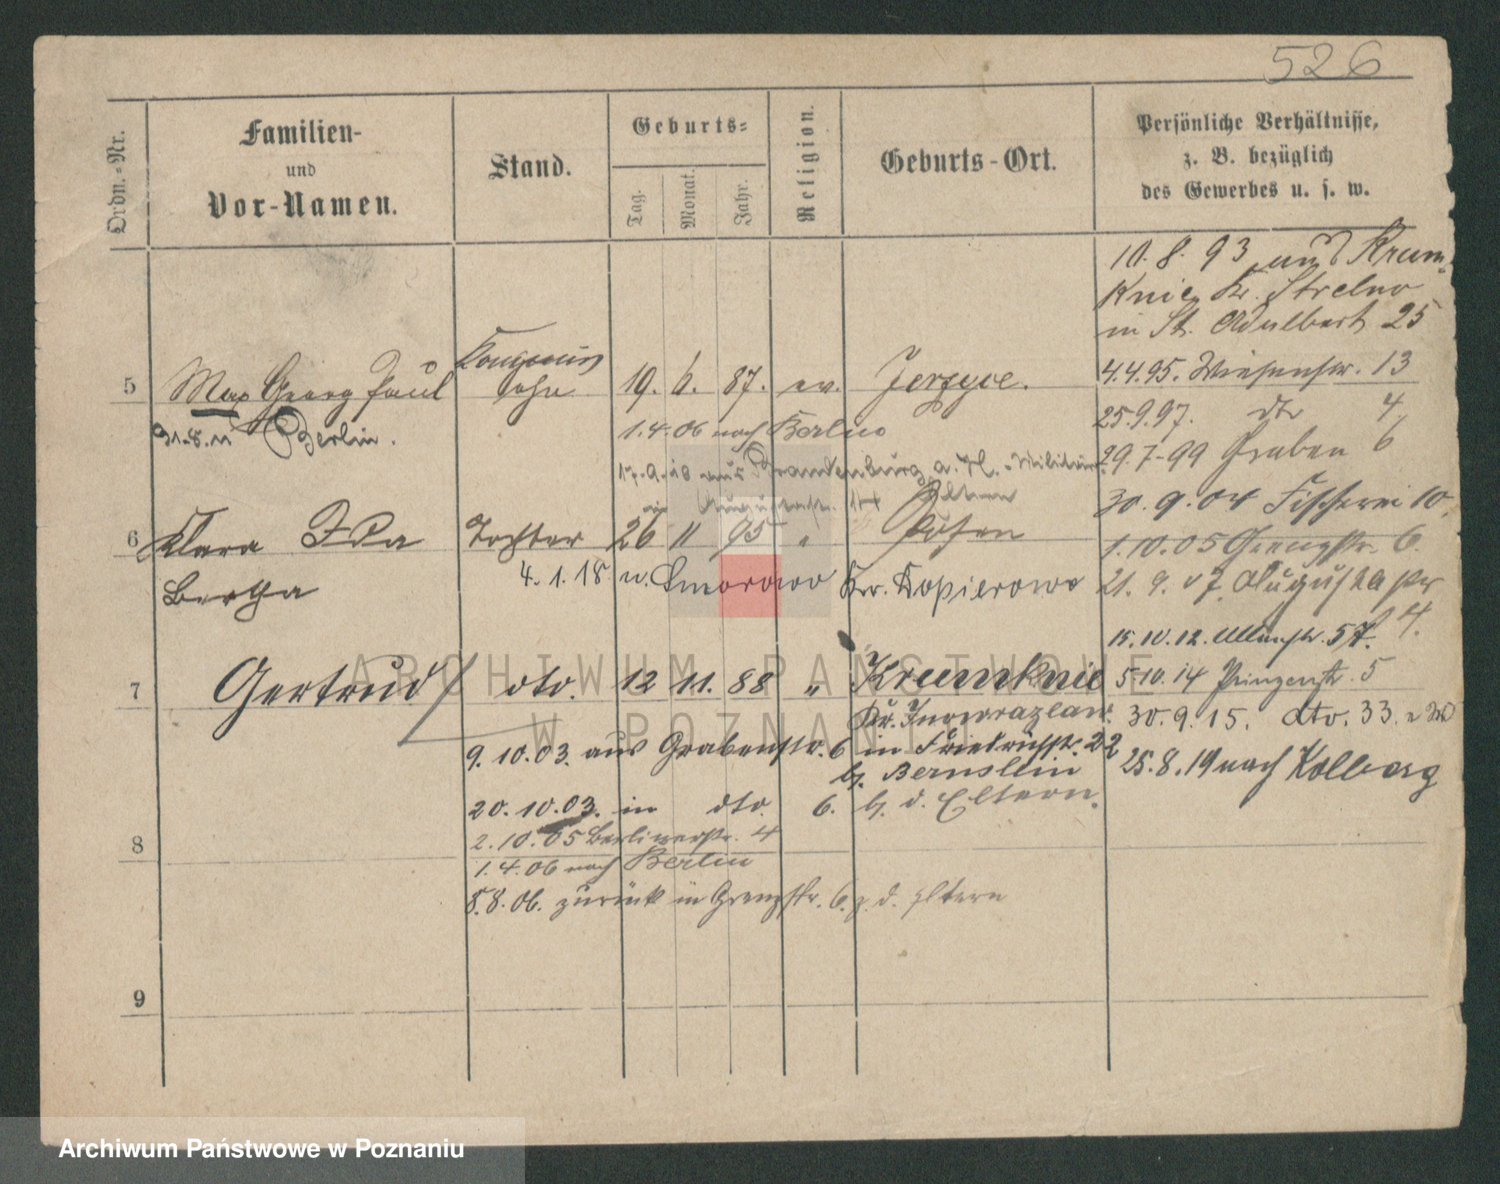 526
Ordn.-Nr.
Familien-
und
Vor-Namen.
Stand.
Geburts-
Tag.
Monat.
Jahr.
Religion.
Geburts-Ort.
Persönliche Verhältnisse,
z. B. bezüglich
des Gewerbes u. s. w.
10. 8. 93 aus Krum-
knie Kr. Strelno
in St. Adalbert 25
5 Max Georg Paul Sohn 19. 6. 87. ev. Jerzyce.
4.4.95. Wiesenstr. 13
Berlin.
1.4.06 nach Berlin
25.9.97. dto 4,
17.9.10 aus Brandenburg a. H. Militär
29.7.99 Graben 6
Eltern
30.9.04 Fischerei 10.
6 Klara Ida Tochter 26 " 95 " Posen
Bertha
1.10.05 Grenzstr. 6.
4.1.18 n. Smorowo Kr. Kopierowo
21.9.07 Augustastr
14.
15.10.12. 57.
7 Gertrud dto. 12 11. 88 " Krumknie
5.10.14 Prinzenstr. 5
Kr. Inowrazlaw.
30.9.15. dto. 33.
9.10.03. aus Grabenstr. 6 in Friedrichstr. 22
b. Bernstein
25.8.19 nach Kolberg
20.10.03. in dto. 6. b. d. Eltern.
2.10.05 Berlinerstr. 4
8
1.4.06 nach Berlin
8.8.06. zurück in Grenzstr. 6. z. d. Eltern
9
ARCHIWUM PAŃSTWOWE
W POZNANIU
Archiwum Państwowe w Poznaniu